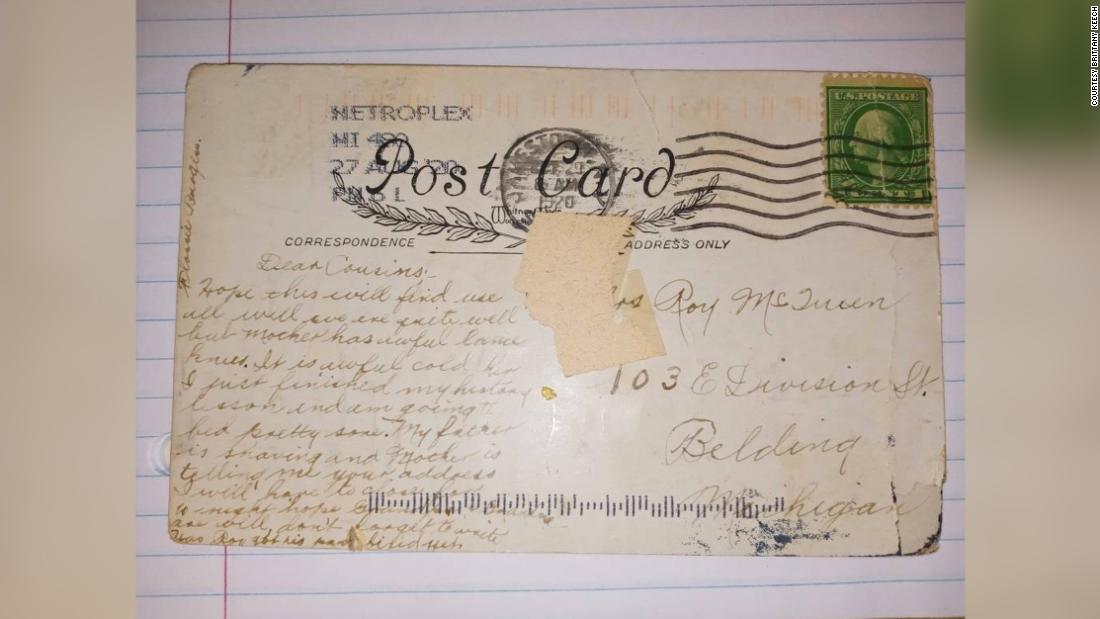 COURTESY BRITTANY KEECH
U.S. POSTAGE
METROPLEX
MI 480
27 AUG '20
PM 5 L
1920
Post Card
CORRESPONDENCE
ADDRESS ONLY
Flossie Burgess.
Dear Cousins:-
Hope this will find use
all well we are quite well
but Mother has awful lame
knees. It is awful cold
I just finished my history
lesson and am going to
bed pretty sone. My father
is shaving and Mother is
telling me your address
I will have to close
night hope
are well. don't forget to write
Roy got his pants
Roy McQueen
103 E Division St.
Belding
Michigan